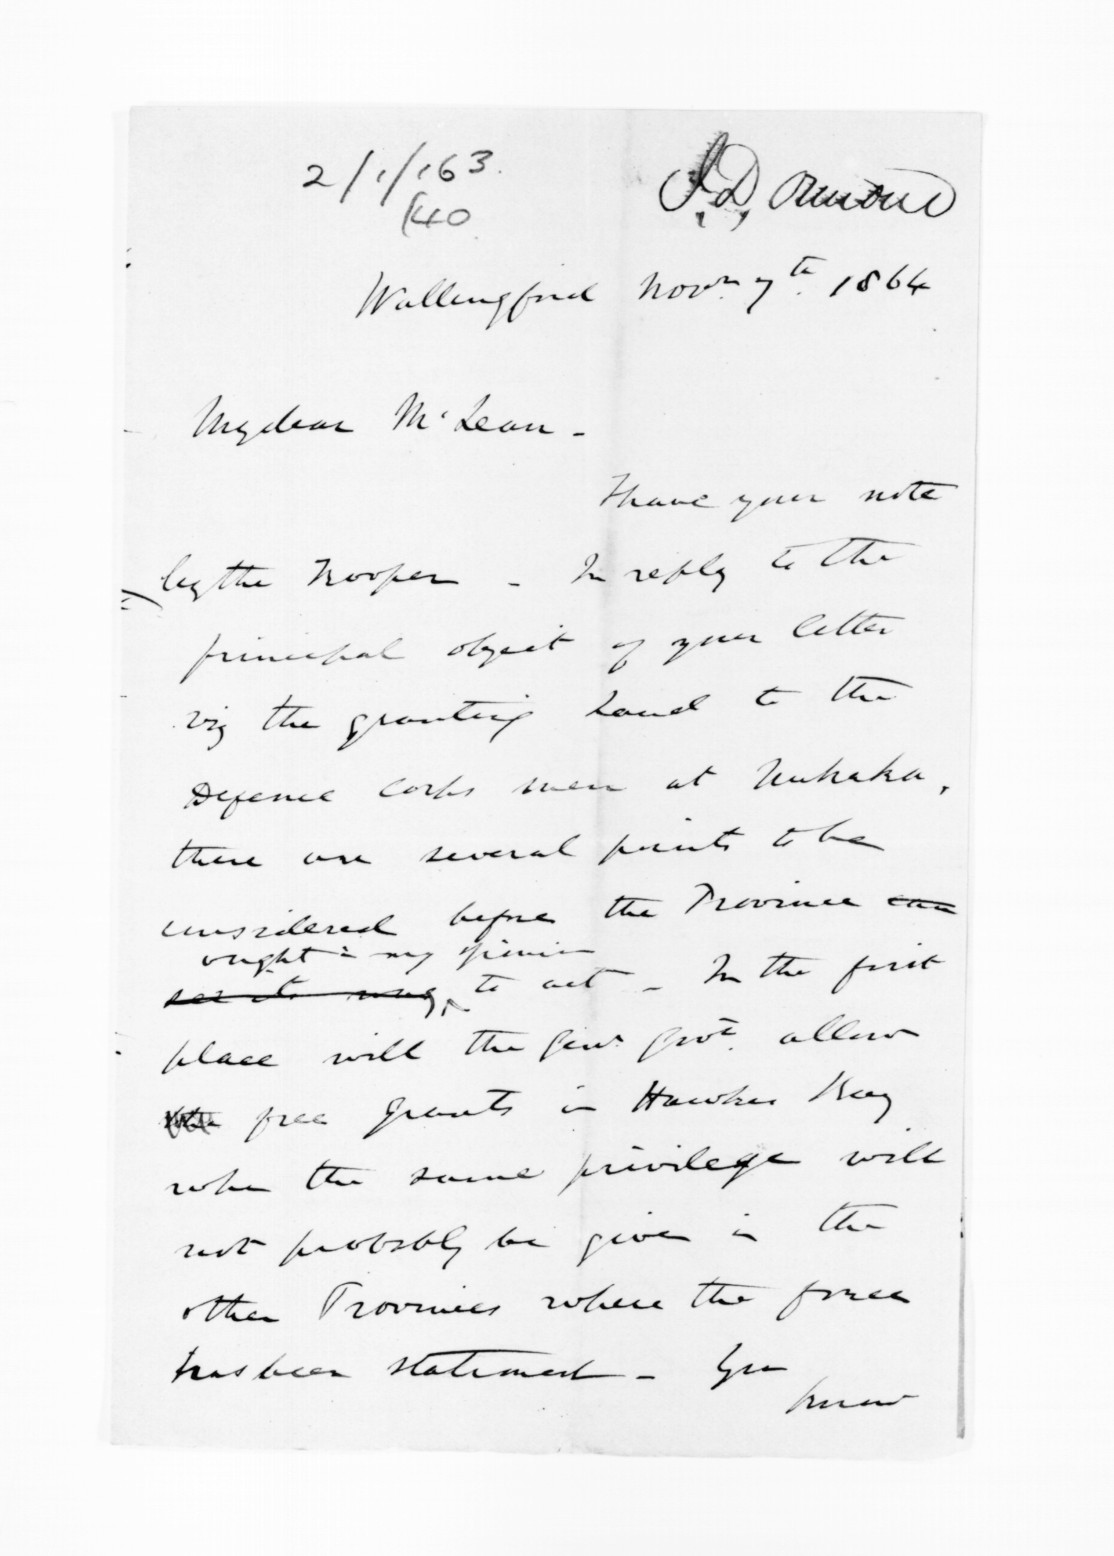 2/1/163.
140
J.D. Ormond
Wallingford Novr. 7th. 1864
My dear McLean -
I have your note
by the Trooper - In reply to the
principal object of your letter
viz the granting Land to the
Defence Corps men at Nuhaka,
there are several points to be
considered before the Province can
ought in my opinion
see its way to act - In the first
place will the Genl. Govt. allow
free grants in Hawkes Bay
when the same privilege will
not probably be given in the
other Provinces where the force
has been stationed - You
know